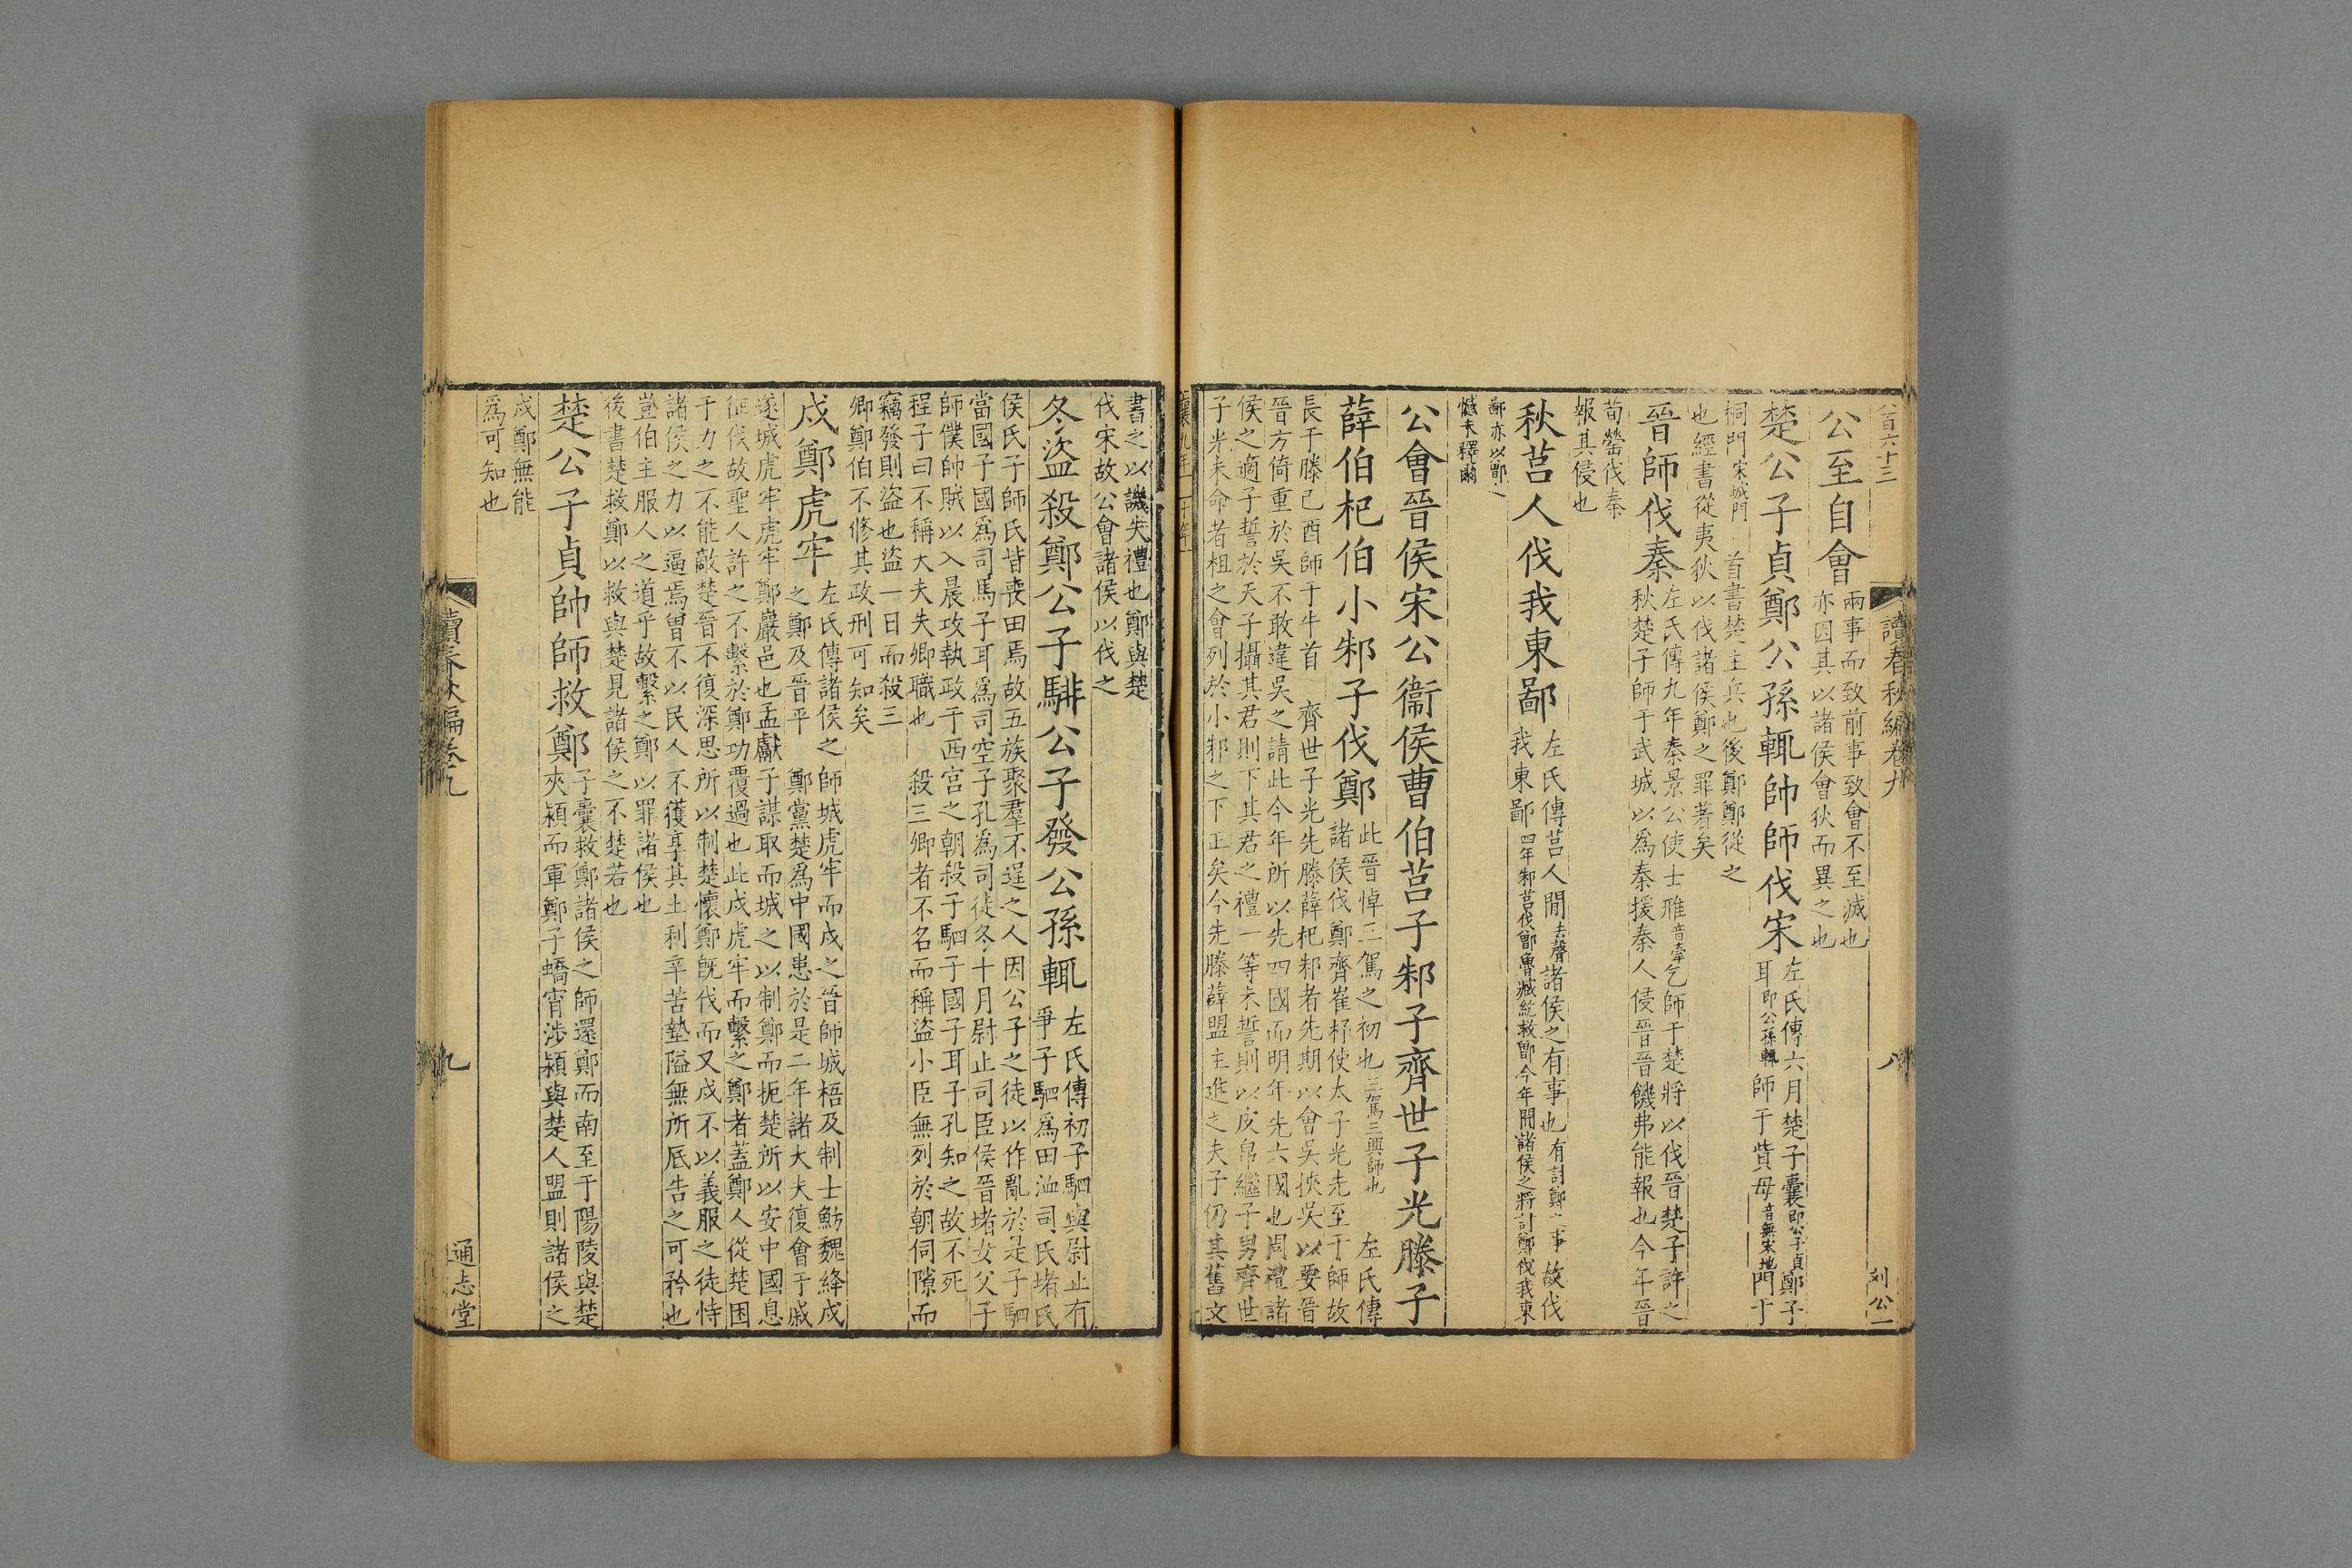 八百六十三
讀春秋編卷九
八
刘公一
公至自會
兩事而致前事致會不至滅也
亦因其以諸侯會狄而異之也
楚公子貞鄭公孫輒帥師伐宋
左氏傳六月楚子囊即公子貞鄭子
耳即公孫輒師于訾母音無宋地門于
桐門宋城門 首書楚主兵也後鄭鄭從之
也經書從夷狄以伐諸侯鄭之罪著矣
晉師伐秦
左氏傳九年秦景公使士雅音牽乞師于楚將以伐晉楚子許之
秋楚子師于武城以為秦援秦人侵晉晉饑弗能報也今年晉
荀罃伐秦
報其侵也
秋莒人伐我東鄙
左氏傳莒人閒去聲諸侯之有事也有討鄭之事故伐
我東鄙四年邾莒伐鄫魯臧紇救鄫今年間諸侯之將討鄭伐我東
鄙亦以鄫之
憾未釋爾
公會晉侯宋公衞侯曹伯莒子邾子齊世子光滕子
薛伯杞伯小邾子伐鄭
此晉悼三駕之初也三駕三興師也 左氏傳
諸侯伐鄭齊崔杼使太子光先至于師故
長于滕已酉師于牛首 齊世子光先滕薛杞邾者先期以會吳挾吳以要晉
晉方倚重於吳不敢違吳之請此今年所以先四國而明年先六國也周禮諸
侯之適子誓於天子攝其君則下其君之禮一等未誓則以皮帛繼子男齊世
子光未命者柤之會列於小邾之下正矣今先滕薛盟主進之夫子仍其舊文
襄九年 十年
書之以譏失禮也鄭與楚
伐宋故公會諸侯以伐之
冬盜殺鄭公子騑公子發公孫輒
左氏傳初子駟與尉止有
爭子駟為田洫司氏堵氏
侯氏子師氏皆喪田焉故五族聚羣不逞之人因公子之徒以作亂於是子駟
當國子國為司馬子耳為司空子孔為司徒冬十月尉止司臣侯晉堵女父子
師僕帥賊以入晨攻執政于西宮之朝殺子駟子國子耳子孔知之故不死
程子曰不稱大夫失卿職也 殺三卿者不名而稱盜小臣無列於朝伺隙而
竊發則盜也盜一日而殺三
卿鄭伯不修其政刑可知矣
戍鄭虎牢
左氏傳諸侯之師城虎牢而戍之晉師城梧及制士魴魏絳戍
之鄭及晉平 鄭黨楚為中國患於是二年諸大夫復會于戚
遂城虎牢虎牢鄭巖邑也孟獻子謀取而城之以制鄭而扼楚所以安中國息
征伐故聖人許之不繫於鄭功覆過也此戍虎牢而繫之鄭者蓋鄭人從楚困
于力之不能敵楚晉不復深思所以制楚懷鄭既伐而又戍不以義服之徒恃
諸侯之力以逼焉曾不以民人不獲享其土利辛苦墊隘無所厎告之可矜也
豈伯主服人之道乎故繫之鄭以罪諸侯也
後書楚救鄭以救與楚見諸侯之不楚若也
楚公子貞帥師救鄭
子囊救鄭諸侯之師還鄭而南至于陽陵與楚
夾潁而軍鄭子蟜宵涉潁與楚人盟則諸侯之
戍鄭無能
為可知也
讀春秋編卷九
九
通志堂